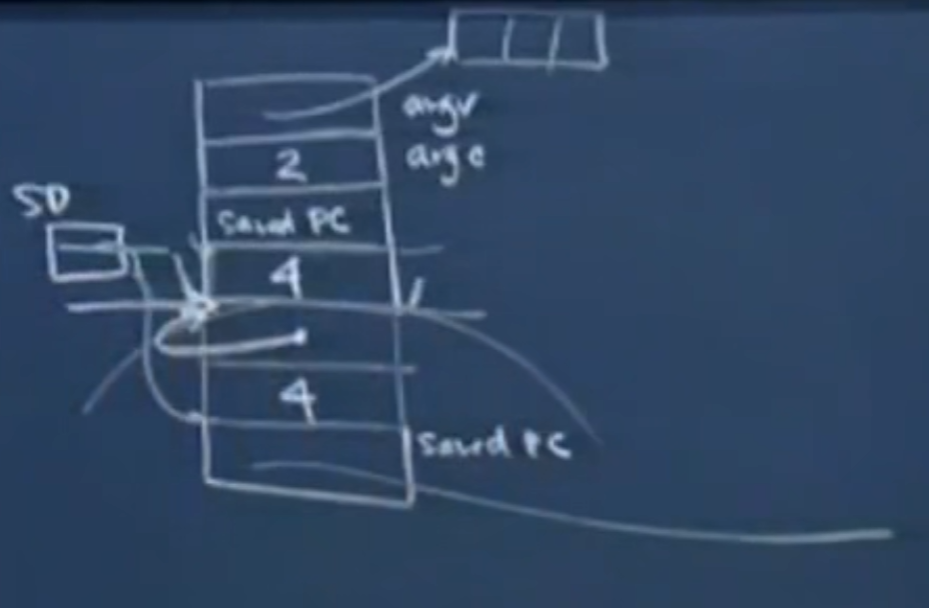 argv
2
argc
SP
Saved PC
4
i
4
Saved PC